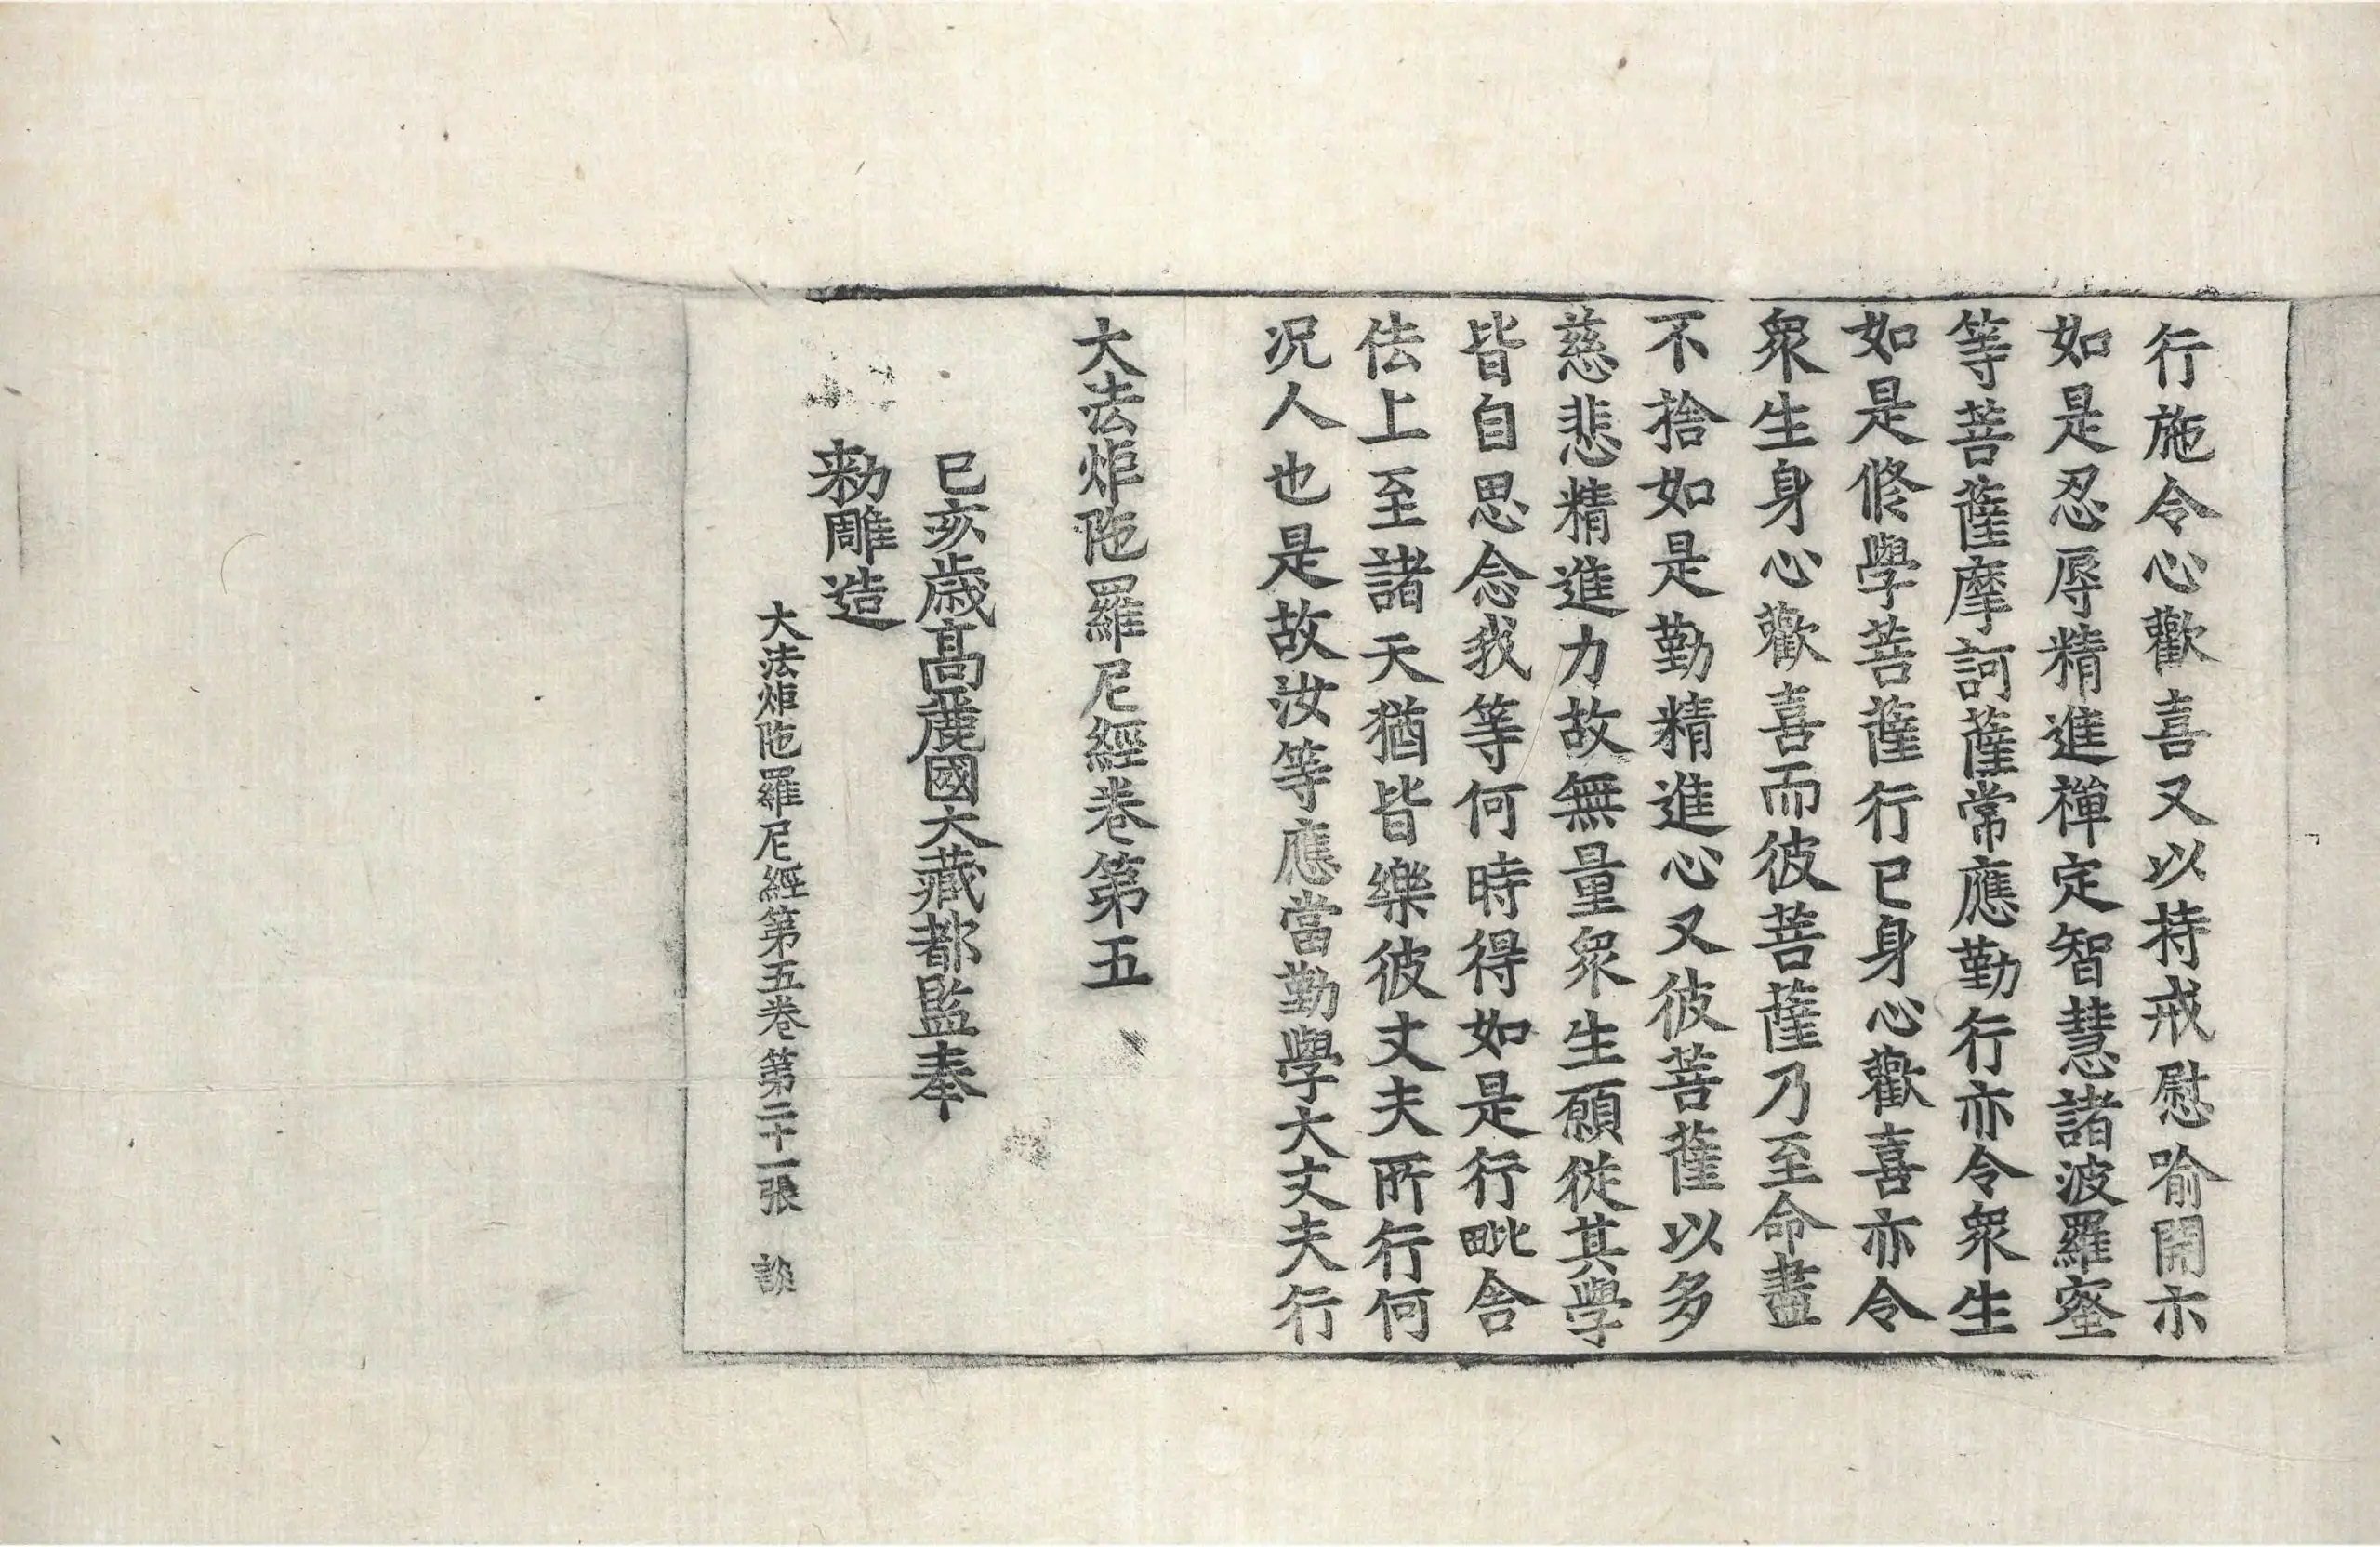 行施令心歡喜又以持戒慰喻開示
如是忍辱精進禪定智慧諸波羅蜜
等菩薩摩訶薩常應勤行亦令衆生
如是修學菩薩行已身心歡喜亦令
衆生身心歡喜而彼菩薩乃至命盡
不捨如是勤精進心又彼菩薩以多
慈悲精進力故無量衆生願從其學
皆自思念我等何時得如是行毗舍
佉上至諸天猶皆樂彼丈夫所行何
况人也是故汝等應當勤學大丈夫行
大法炬陁羅尼經卷第五
己亥歲高麗國大藏都監奉
勑雕造
大法炬陁羅尼經第五卷 第二十一張 談